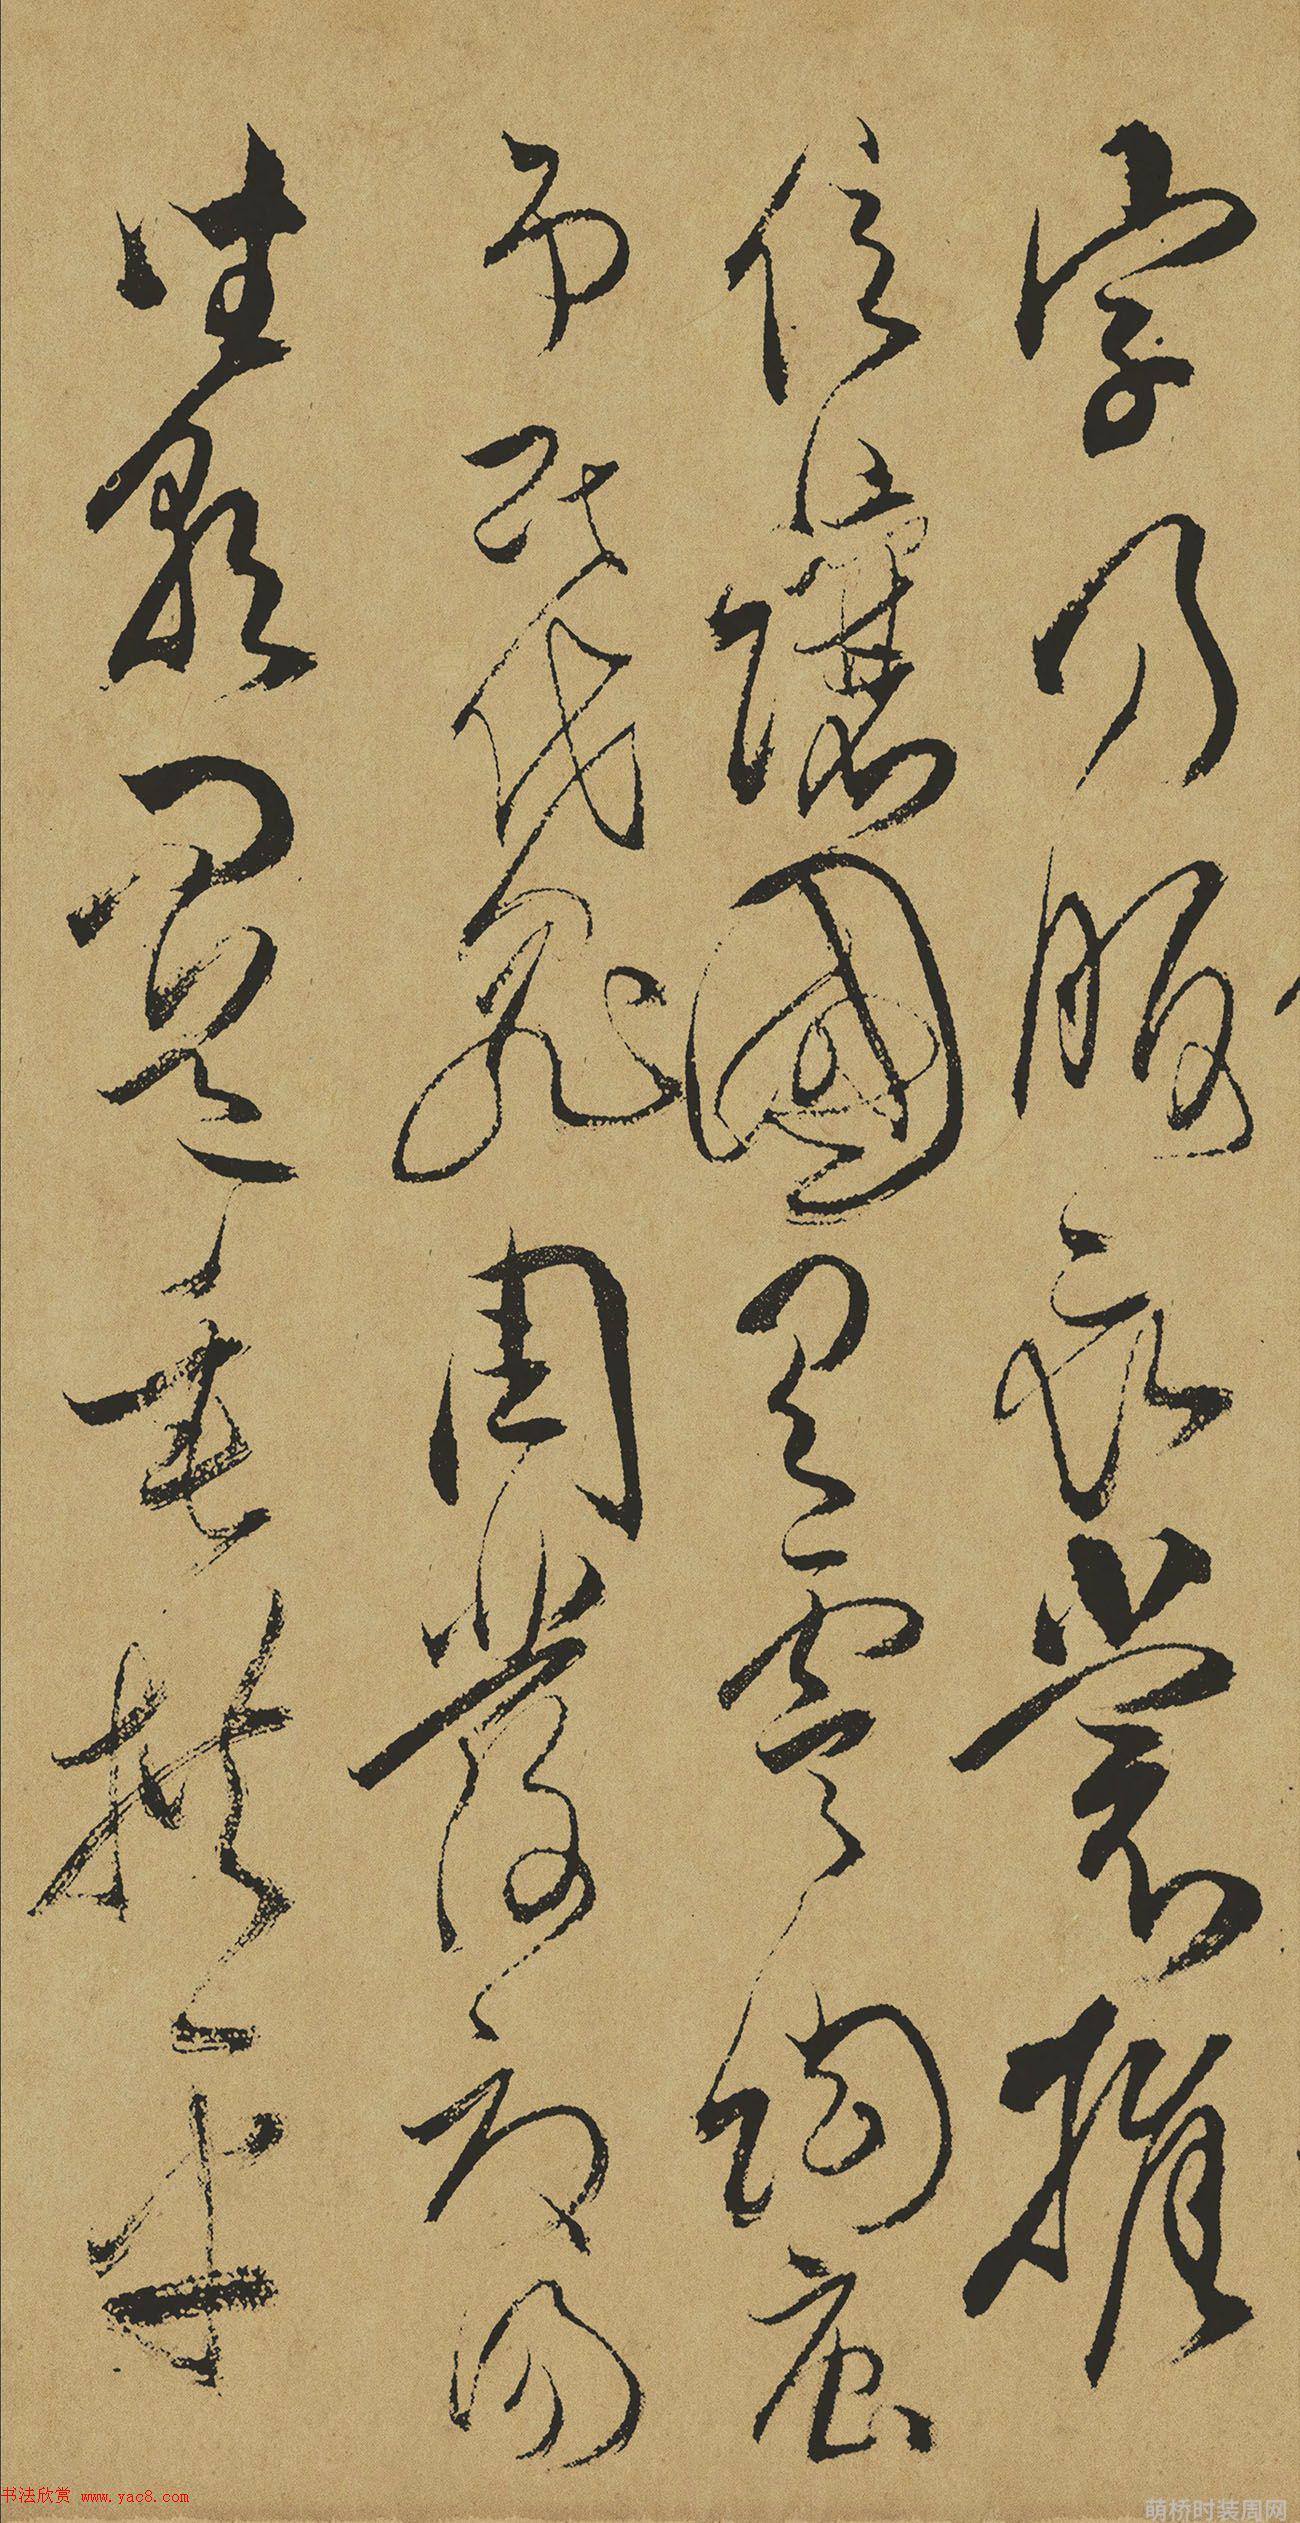 字乃服衣裳推
位讓國有虞陶唐
弔民伐罪周發商湯
坐朝問道垂拱平
书法欣赏 www.yac8.com
萌桥时装周网